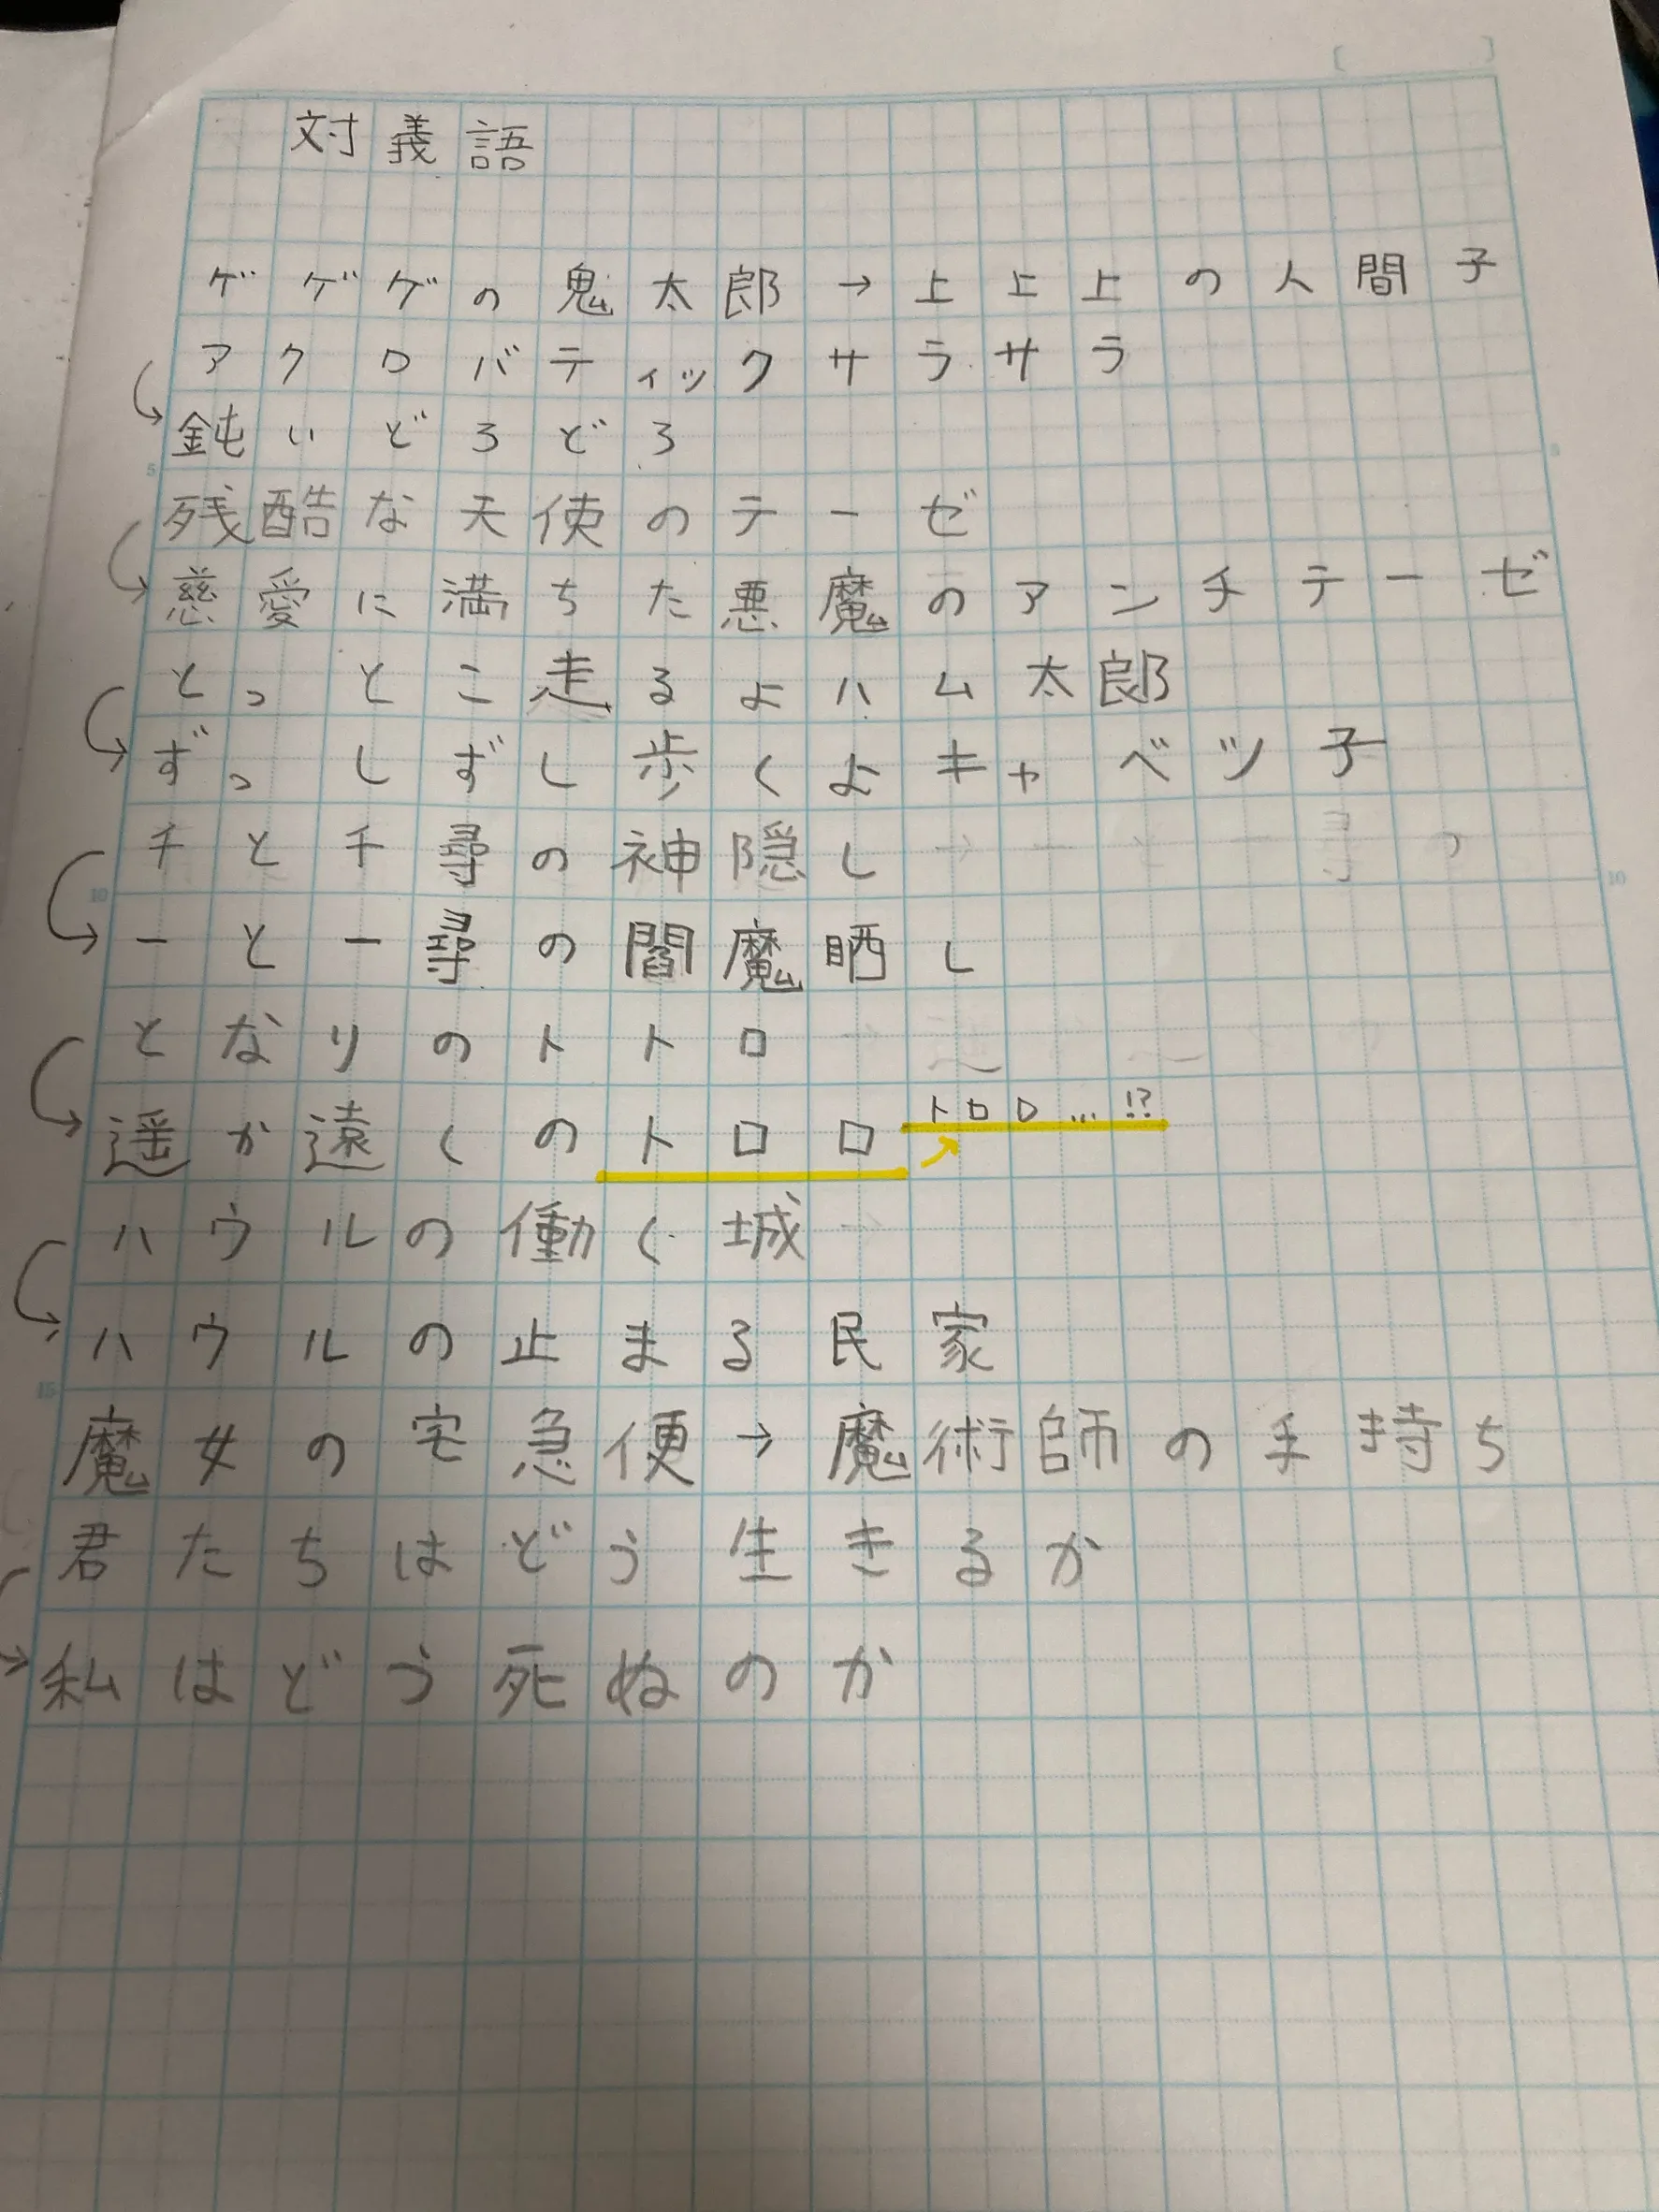 対義語
ゲゲゲの鬼太郎→上上上の人間子
アクロバティックサラサラ
鈍いどろどろ
残酷な天使のテーゼ
慈愛に満ちた悪魔のアンチテーゼ
とっとこ走るよハム太郎
ずっしずし歩くよキャベツ子
千と千尋の神隠し
一と一尋の閻魔晒し
となりのトトロ
遥か遠くのトロロ トロロ…!?
ハウルの働く城
ハウルの止まる民家
魔女の宅急便→魔術師の手持ち
君たちはどう生きるか
私はどう死ぬのか
5
5
10
10
15